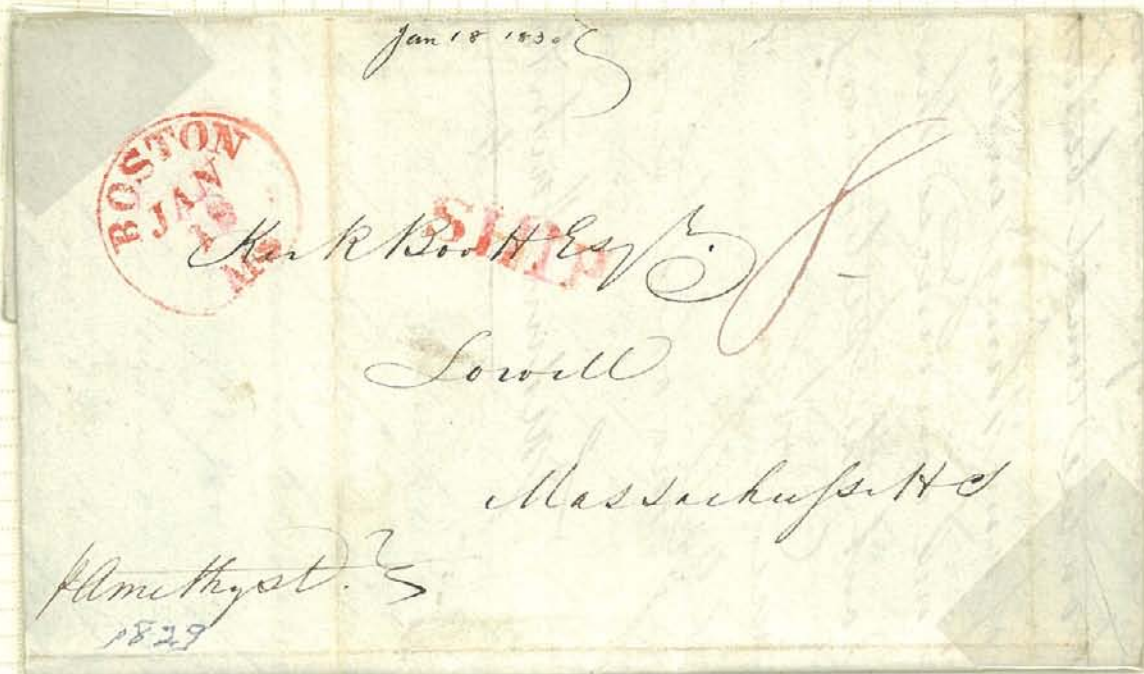 Jan 18 1830
BOSTON
JAN
MS
SHIP
Kirk Boott Esqr.
8
Lowell
Massachusetts
p Amethyst.
1829